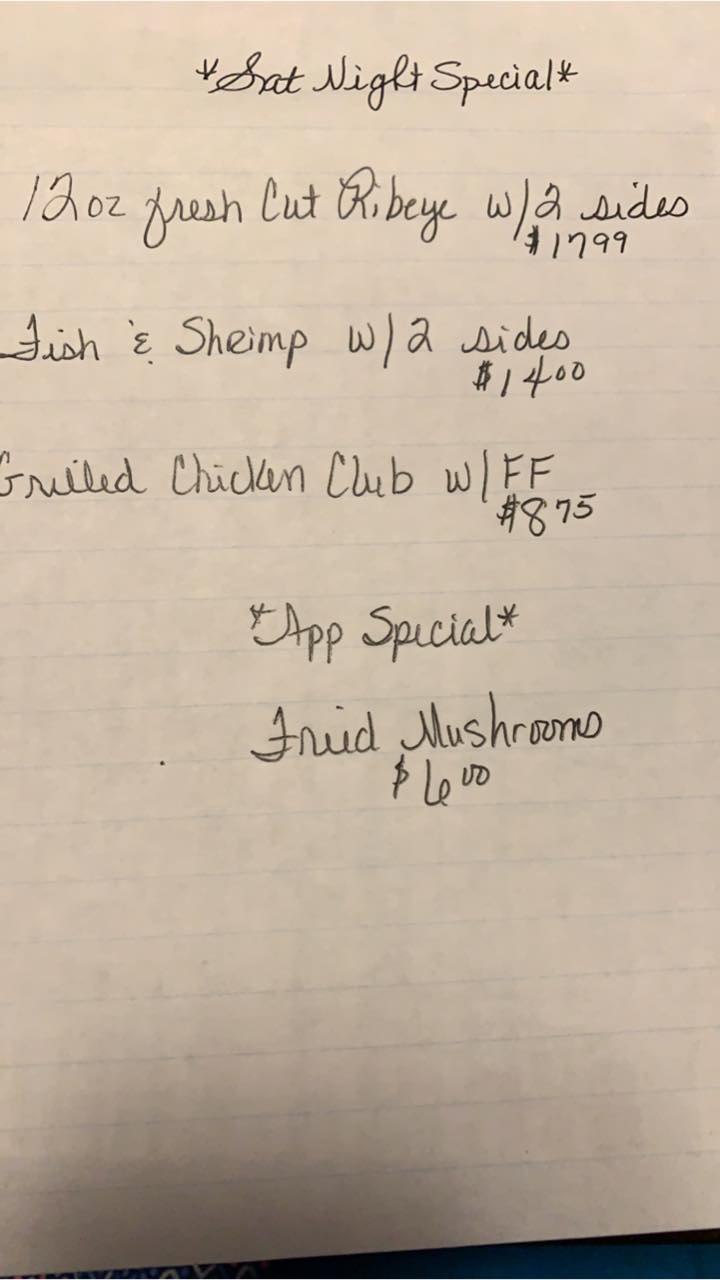 *Sat Night Special*
12oz fresh Cut Ribeye w/2 sides
$1799
Fish & Shrimp w/2 sides
$1400
Grilled Chicken Club w/FF
$875
*App Special*
Fried Mushrooms
$600